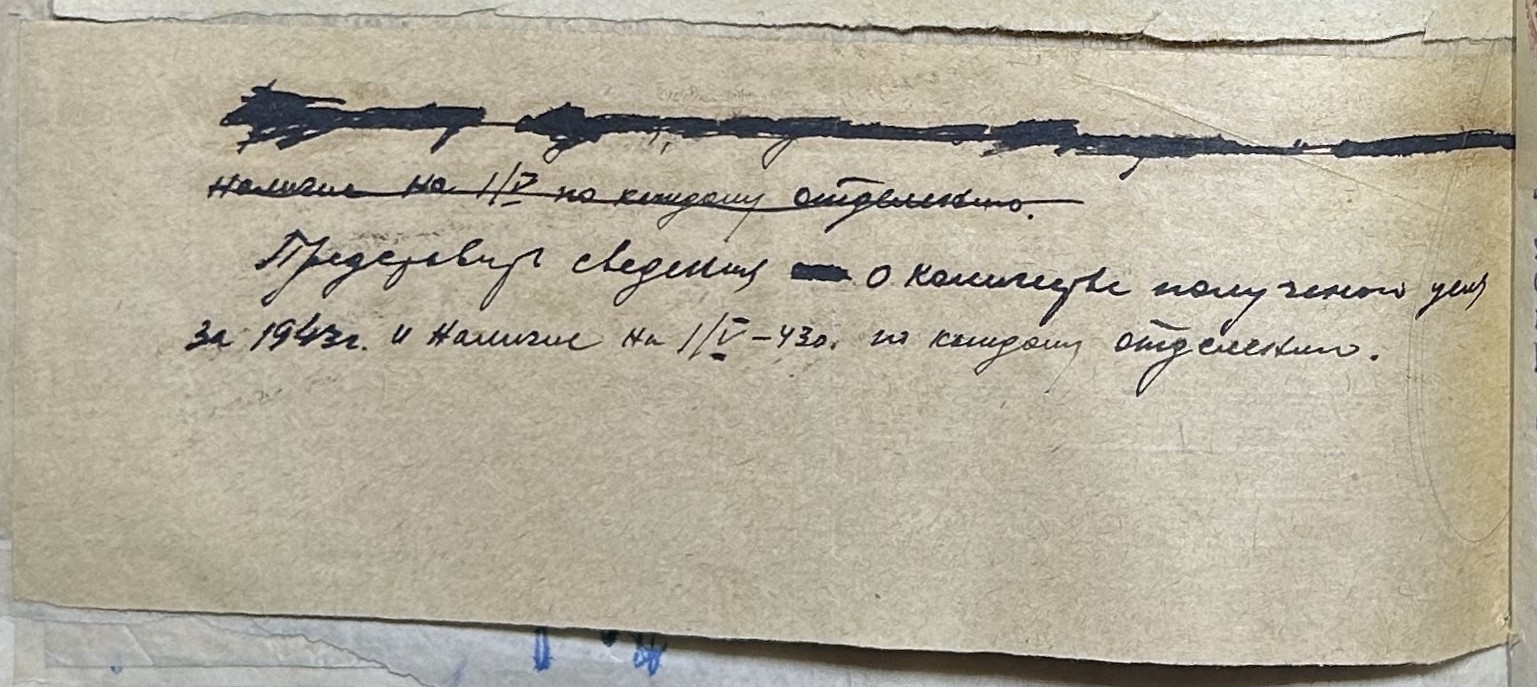 Наличие на 1/V по каждому отделению.
Представить сведения о количестве полученого
за 1943г. и наличие на 1/V-43г. по каждому отделению.